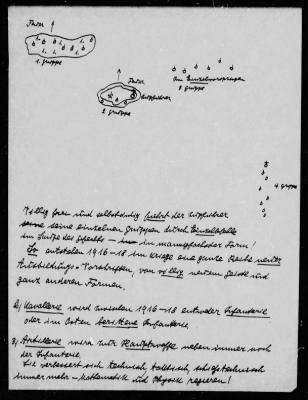 Führer
1. Gruppe
Führer
2. Gruppe
Im Einzelvorspringen
3. Gruppe
4. Gruppe
Völlig frei und selbständig führt der
seine einzelnen Gruppen durch Einzelbefehle
im Laufe des Gefechts – in mannigfachster Form!
So entstehen 1916–18 im Kriege eine ganze Reihe neuer
Ausbildungs-Vorschriften, von völlig neuem Geiste und
ganz anderen Formen.
2) Kavallerie wird zwischen 1916–18 entweder Infanterie
oder im Osten berittene Infanterie.
3) Artillerie wird zur Hauptwaffe neben immer noch
der Infanterie.
Sie verbessert sich technisch, taktisch, schiesstechnisch
immer mehr – Mathematik und Physik regieren!